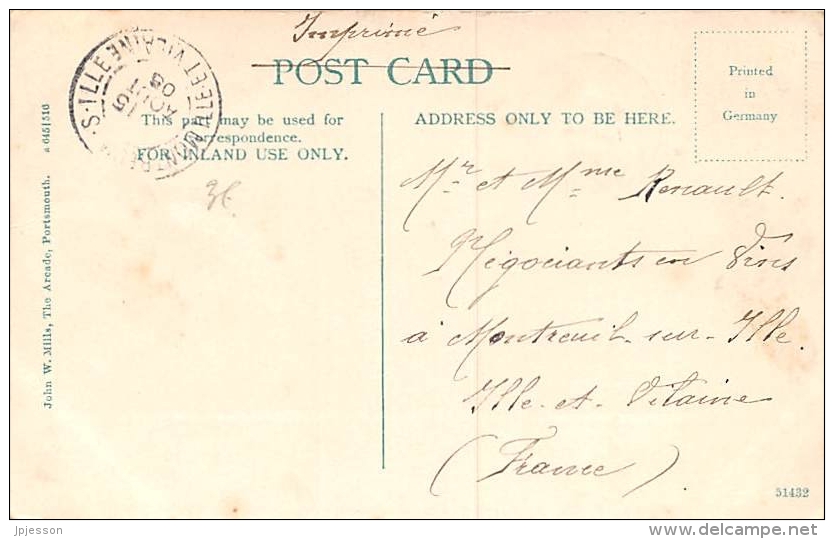 Imprimé
POST CARD
This part may be used for
correspondence.
FOR INLAND USE ONLY.
ADDRESS ONLY TO BE HERE.
Printed
in
Germany
Mr et Mme Renault
Négociants en Vins
à Montreuil-sur-Ille
Ille-et-Vilaine
(France)
John W. Mills, The Arcade, Portsmouth. a 645|516
S-ILLE
ILLE-ET-VILAINE
15
AOUT
08
51432
jpjesson
delcampe.net